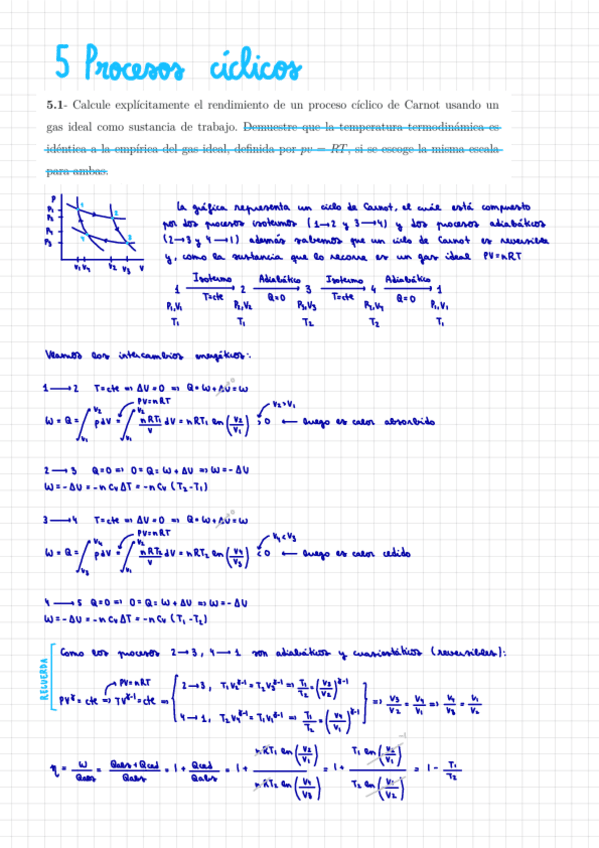 5 Procesos cíclicos
5.1- Calcule explícitamente el rendimiento de un proceso cíclico de Carnot usando un
gas ideal como sustancia de trabajo. Demuestre que la temperatura termodinámica es
idéntica a la empírica del gas ideal, definida por pv = RT, si se escoge la misma escala
para ambas.
La gráfica representa un ciclo de Carnot, el cuál está compuesto
por dos procesos isotermos (1→2 y 3→4) y dos procesos adiabáticos
(2→3 y 4→1) además sabemos que un ciclo de Carnot es reversible
y, como la sustancia que lo recorre es un gas ideal PV=nRT
P
V₁ V₄ V₂ V₃ V
Isotermo Adiabático Isotermo Adiabático
1 → 2 → 3 → 4 → 1
T=cte Q=0 T=cte Q=0
P₁,V₁ P₂,V₂ P₃,V₃ P₄,V₄ P₁,V₁
T₁ T₁ T₂ T₂ T₁
Veamos los intercambios energéticos:
1→2 T=cte ⇒ ΔU=0 ⇒ Q=W+ΔU=W
PV=nRT V₂>V₁
W=Q=∫V₁V₂ pdV=∫V₁V₂ nRT₁/V dV=nRT₁ ln(V₂/V₁)>0 ← luego es calor absorbido
2→3 Q=0 ⇒ 0=Q=W+ΔU ⇒ W=-ΔU
W=-ΔU=-nCvΔT=-nCv(T₂-T₁)
3→4 T=cte ⇒ ΔU=0 ⇒ Q=W+ΔU=W
PV=nRT V₄<V₃
W=Q=∫V₃V₄ pdV=∫ nRT₂/V dV=nRT₂ ln(V₄/V₃)<0 ← luego es calor cedido
4→5 Q=0 ⇒ 0=Q=W+ΔU ⇒ W=-ΔU
W=-ΔU=-nCvΔT=-nCv(T₁-T₂)
RECUERDA
Como los procesos 2→3, 4→1 son adiabáticos y cuasiestáticos (reversibles):
PV=nRT
2→3, T₁V₂^γ-1=T₂V₃^γ-1 ⇒ T₁/T₂=(V₃/V₂)^γ-1
PV^γ=cte ⇒ TV^γ-1=cte ⇒ ⇒ V₃/V₂=V₄/V₁ ⇒ V₄/V₃=V₁/V₂
4→1, T₂V₄^γ-1=T₁V₁^γ-1 ⇒ T₁/T₂=(V₄/V₁)^γ-1
η=W/Qabs=Qabs+Qced/Qabs=1+Qced/Qabs=1+nRT₁ ln(V₂/V₁)/nRT₂ ln(V₄/V₃)=1+T₁ ln(V₂/V₁)/T₂ ln(V₁/V₂)=1-T₁/T₂